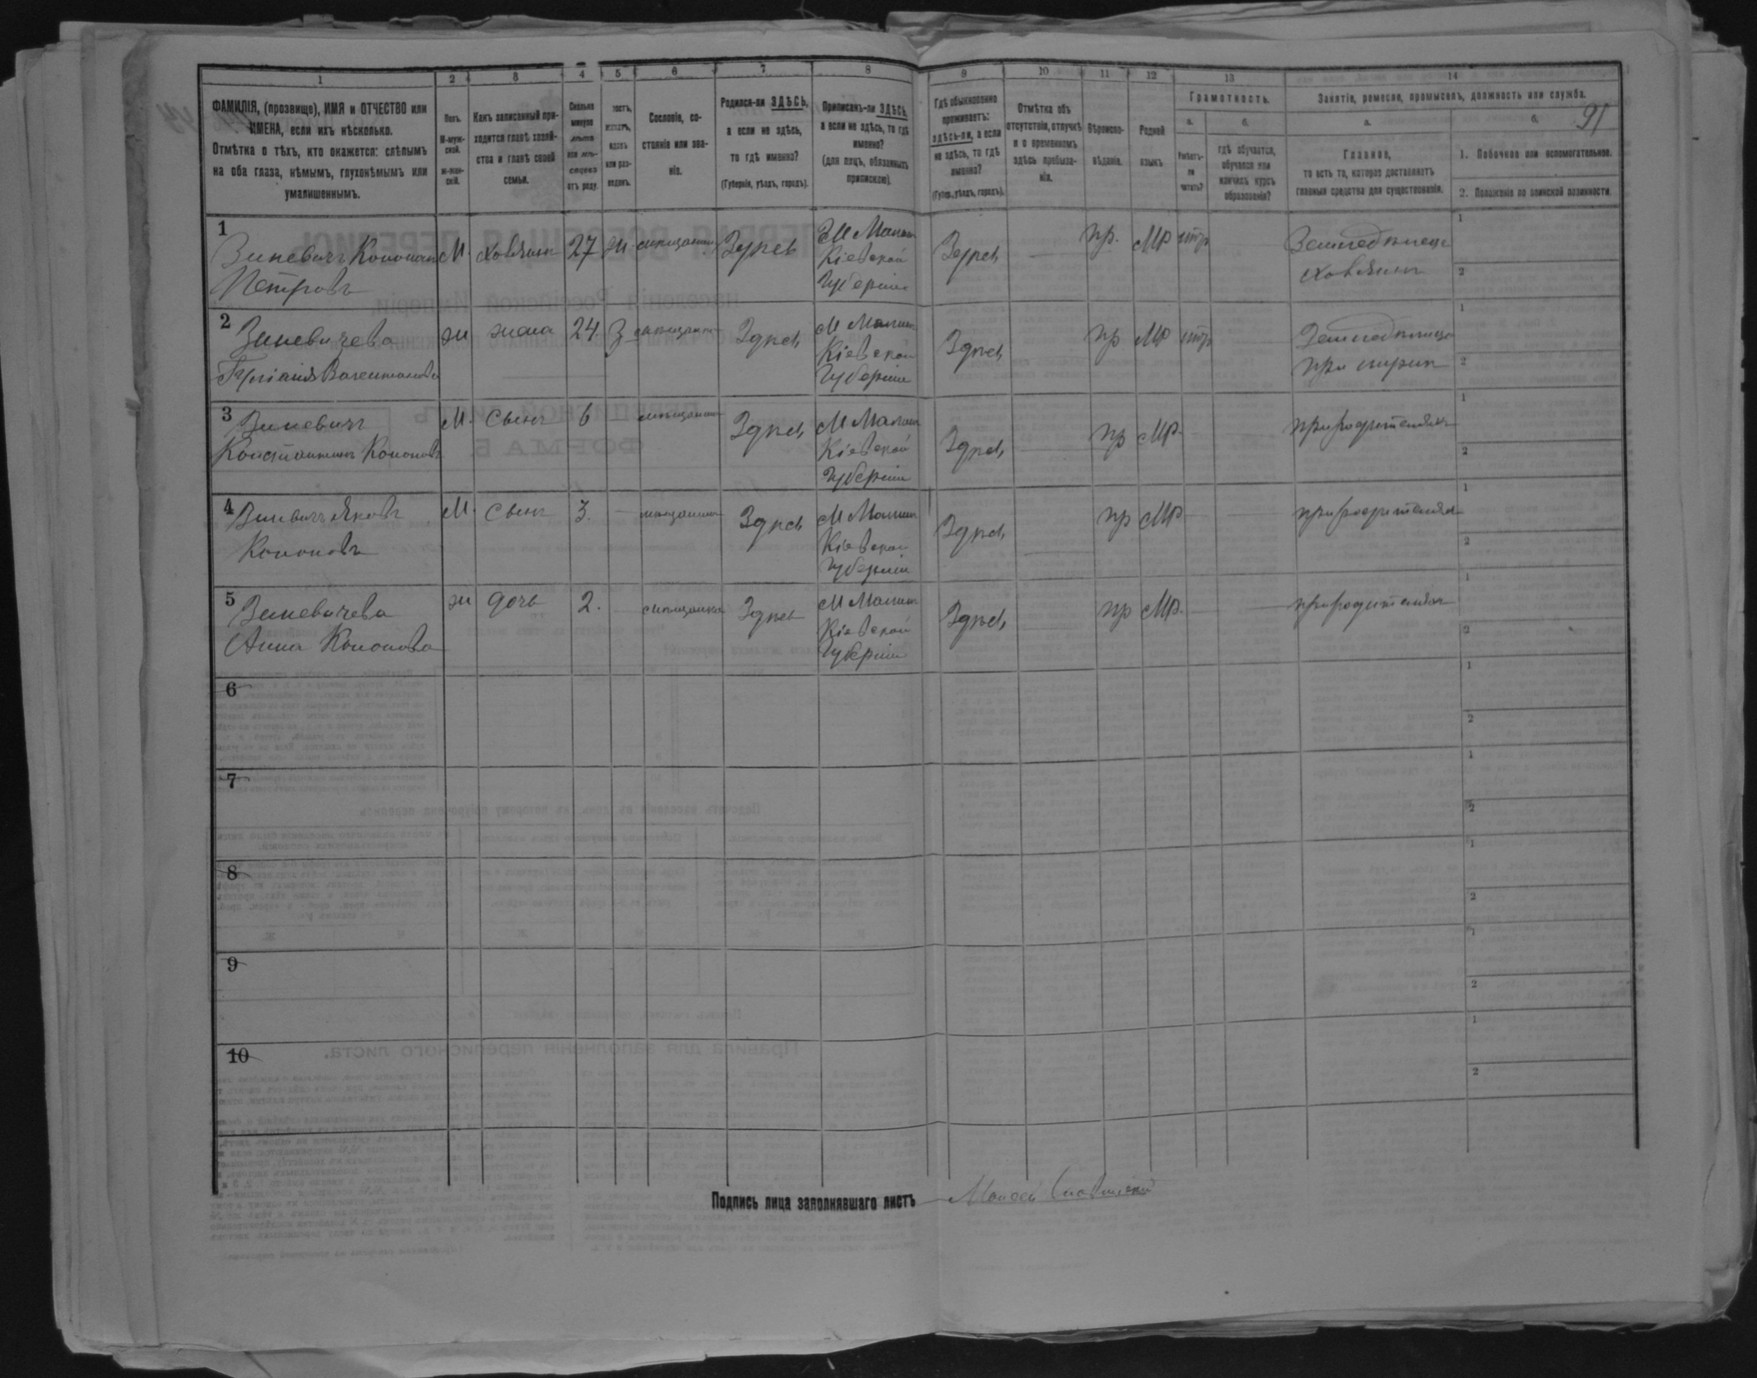 1 2 3 4 5 6 7 8 9 10 11 12 13 14
91
ФАМИЛІЯ, (прозвище), ИМЯ и ОТЧЕСТВО или
ИМЕНА, если ихъ нѣсколько.
Отмѣтка о тѣхъ, кто окажется: слѣпымъ
на оба глаза, нѣмымъ, глухонѣмымъ или
умалишеннымъ.
Полъ.
М-муж-
ской.
ж-жен-
скій.
Какъ записанный при-
ходится главѣ хозяй-
ства и главѣ своей
семьи.
Сколько
минуло
лѣтъ
или мѣ-
сяцевъ
отъ роду.
холостъ,
женатъ,
вдовъ
или раз-
веденъ.
Сословіе, со-
стояніе или зва-
ніе.
Родился-ли ЗДѢСЬ,
а если не здѣсь,
то гдѣ именно?
(Губернія, уѣздъ, городъ).
Приписанъ-ли ЗДѢСЬ,
а если не здѣсь, то гдѣ
именно?
(для лицъ, обязанныхъ
припискою).
Гдѣ обыкновенно
проживаетъ:
здѣсь-ли, а если
не здѣсь, то гдѣ
именно?
(Губер., уѣздъ, городъ).
Отмѣтка объ
отсутствіи, отлучкѣ
и о временномъ
здѣсь пребыва-
ніи.
Вѣроиспо-
вѣданіе.
Родной
языкъ
Грамотность.
а.
Умѣетъ-
ли
читать?
б.
гдѣ обучается,
обучался или
кончилъ курсъ
образованія?
Занятіе, ремесло, промыселъ, должность или служба.
а.
Главное,
то есть то, которое доставляетъ
главныя средства для существованія.
б.
1. Побочное или вспомогательное.
2. Положеніе по воинской повинности.
1
Зиневичъ Кононъ
Петровъ
М. хозяинъ 27 ж. мѣщанинъ Здѣсь
М Малинъ
Кіевской
Губерніи
Здѣсь — пр. Мр нѣтъ
Земледѣлецъ
хозяинъ
1
2
2
Зиневичева
ж жена 24 З мѣщанка Здѣсь
М Малинъ
Кіевской
Губерніи
Здѣсь — пр Мр нѣтъ
Земледѣлица
при мужѣ
1
2
3
Зиневичъ
Константинъ Кононовъ
М. сынъ 6 — мѣщанинъ Здѣсь
М Малинъ
Кіевской
Губерніи
Здѣсь — пр Мр. — —
при родителяхъ
1
2
4
Зиневичъ Яковъ
Кононовъ
М. сынъ 3. — мѣщанинъ Здѣсь
М Малинъ
Кіевской
Губерніи
Здѣсь — пр Мр — —
при родителяхъ
1
2
5
Зиневичева
Анна Кононова
ж дочь 2. мѣщанка Здѣсь
М Малинъ
Кіевской
Губерніи
Здѣсь — пр Мр. — —
при родителяхъ
1
2
6
1
2
7
1
2
8
1
2
9
1
2
10
1
2
Подпись лица заполнявшаго листъ